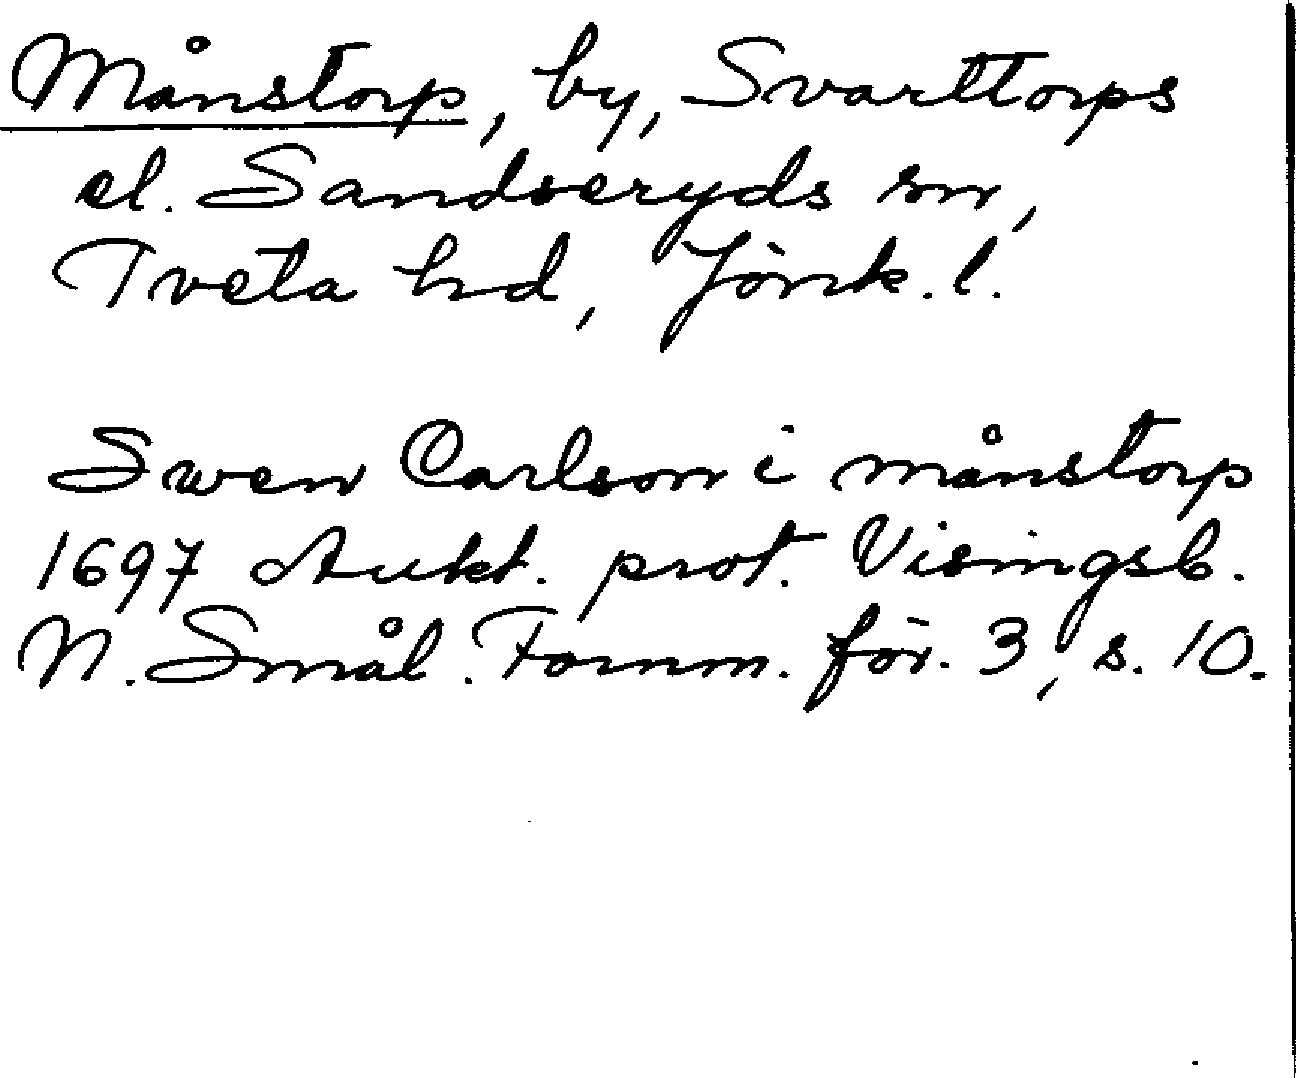 Månstorp, by, Svarttorps
el. Sandseryds sn,
Tveta hd, Jönk. l.
Swen Carlson i månstorp
1697 Aukt. prot. Visingsb.
N. Smål. Fornm. för. 3, s. 10.